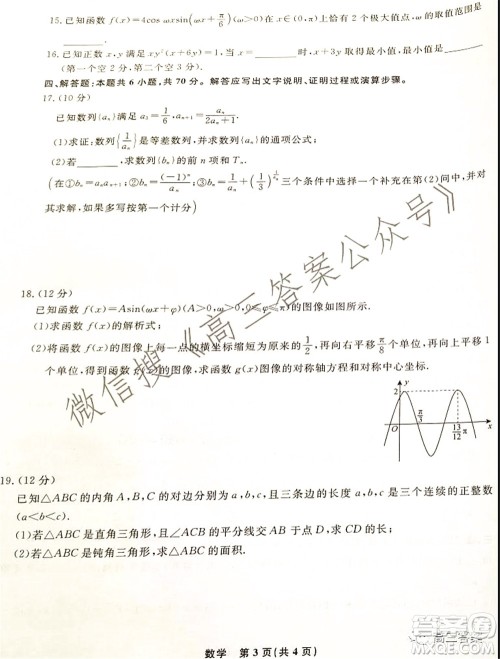 15.已知函数 f(x)=4cos ωxsin(ωx+π/6)(ω>0)在 x∈(0,π)上恰有2个极大值点,ω的取值范围是
________.
16.已知正数 x,y 满足 xy²(x+6y)=1,当 x=________时,x+3y 取得最小值,最小值是________.
(第一个空2分,第二个空3分)
四、解答题:本题共6小题,共70分。解答应写出文字说明、证明过程或演算步骤。
17.(10分)
已知数列{aₙ}满足 a₁=1/6,aₙ₊₁=aₙ/(2aₙ+1).
(1)求证:数列{1/aₙ}是等差数列,并求数列{aₙ}的通项公式;
(2)若________,求数列{bₙ}的前n项和Tₙ.
(在①bₙ=aₙaₙ₊₁;②bₙ=(-1)ⁿ/aₙ;③bₙ=1/aₙ+(1/3)^(1/aₙ)三个条件中选择一个补充在第(2)问中,并对
其求解,如果多写按第一个计分)
18.(12分)
已知函数 f(x)=Asin(ωx+φ)(A>0,ω>0,0≤φ≤π)的图像如图所示.
(1)求函数 f(x)的解析式;
(2)将函数 f(x)的图像上每一点的横坐标缩短为原来的1/2,再向右平移π/8个单位,再向上平移1
个单位,得到函数 g(x)的图像,求函数 g(x)图像的对称轴方程和对称中心坐标.
y
2
O
π/3
13/12 π
x
19.(12分)
已知△ABC的内角A,B,C的对边分别为a,b,c,且三条边的长度a,b,c是三个连续的正整数
(a<b<c).
(1)若△ABC是直角三角形,且∠ACB的平分线交AB于点D,求CD的长;
(2)若△ABC是钝角三角形,求△ABC的面积.
微信搜《高三答案公众号》
数学 第3页(共4页)
高三答案